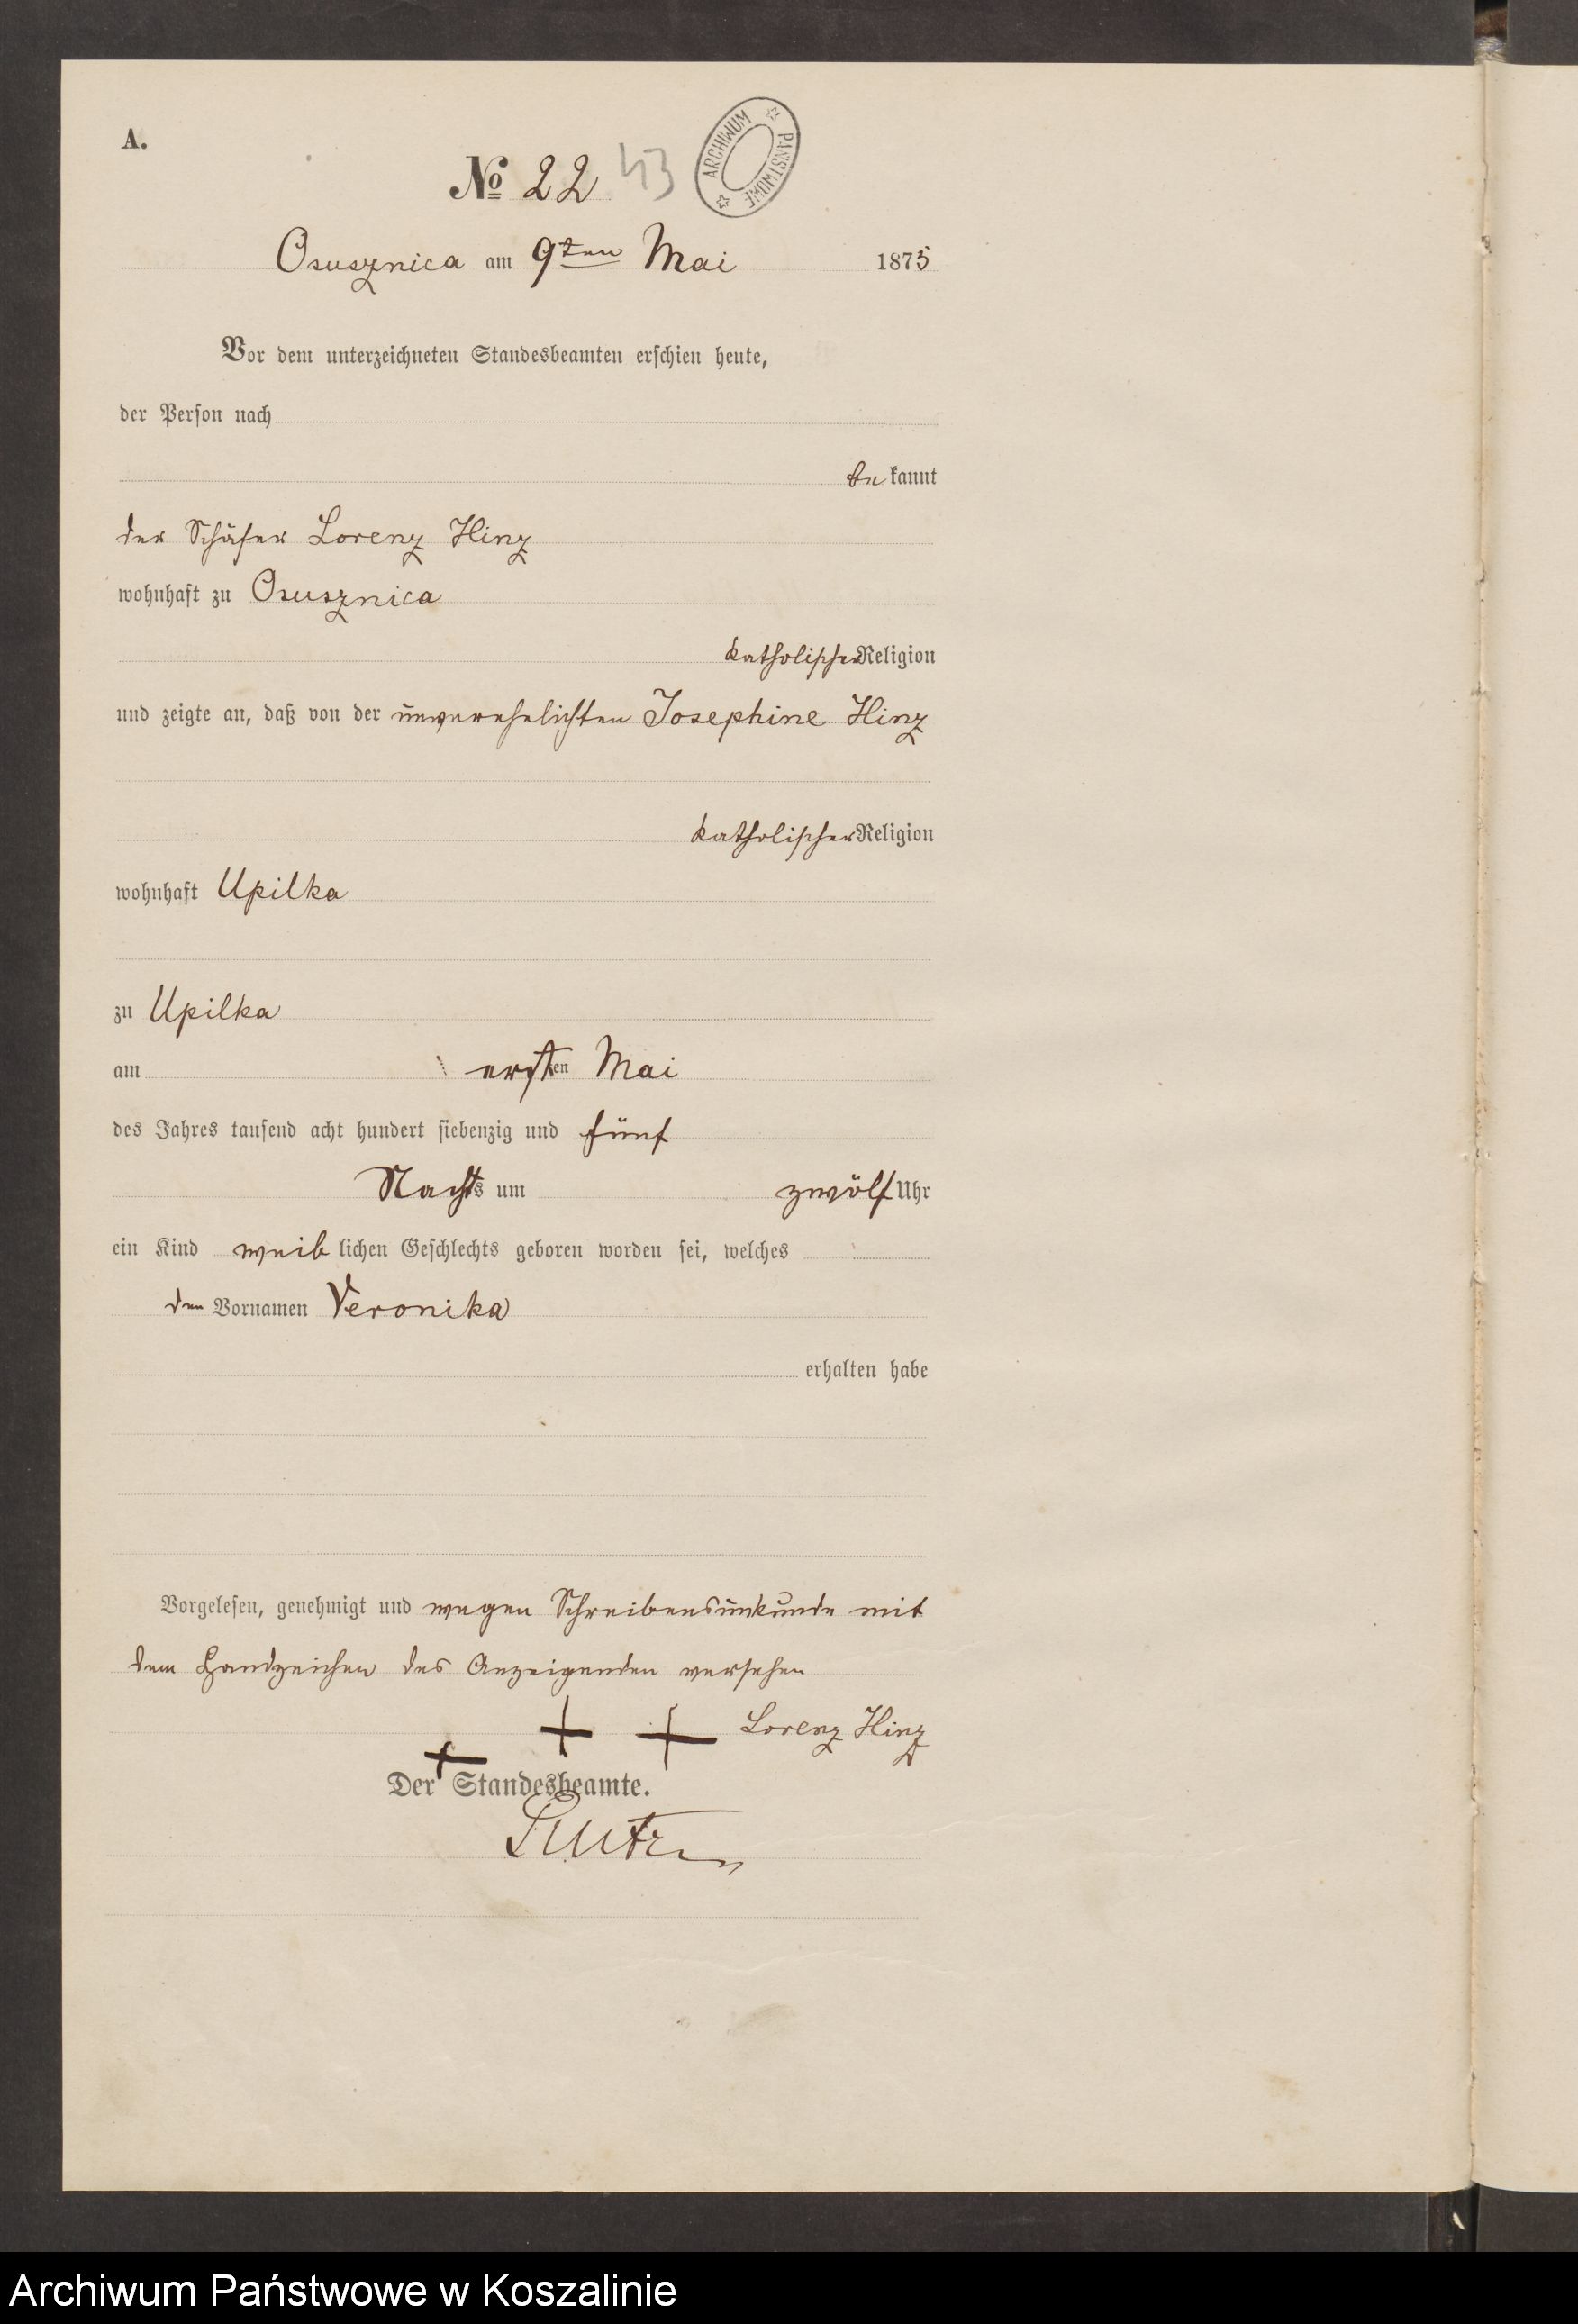 A.
№ 22 43
ARCHIWUM PAŃSTWOWE
Osusznica am 9ten Mai 1875
Vor dem unterzeichneten Standesbeamten erschien heute,
der Person nach
be kannt
der Schäfer Lorenz Hinz
wohnhaft zu Osusznica
katholischer Religion
und zeigte an, daß von der unverehelichten Josephine Hinz
katholischer Religion
wohnhaft Upilka
zu Upilka
am ersten Mai
des Jahres tausend acht hundert siebenzig und fünf
Nachts um zwölf Uhr
ein Kind weib lichen Geschlechts geboren worden sei, welches
den Vornamen Veronika
erhalten habe
Vorgelesen, genehmigt und wegen Schreibensunkunde mit
dem Handzeichen des Anzeigenden versehen
+ + + Lorenz Hinz
Der Standesbeamte.
Archiwum Państwowe w Koszalinie